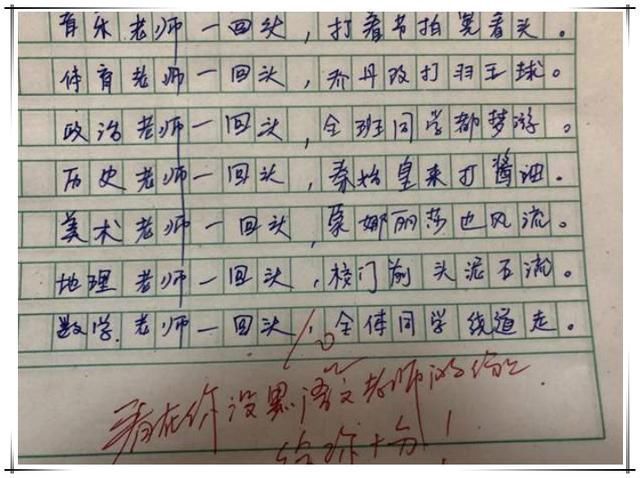 音乐老师一回头,打着节拍晃着头。
体育老师一回头,乔丹改打羽毛球。
政治老师一回头,全班同学都梦游。
历史老师一回头,秦始皇来打酱油。
美术老师一回头,蒙娜丽莎也风流。
地理老师一回头,校门前头泥石流。
数学老师一回头,全体同学绕道走。
10
看在你没黑语文老师的份上
给你十分!